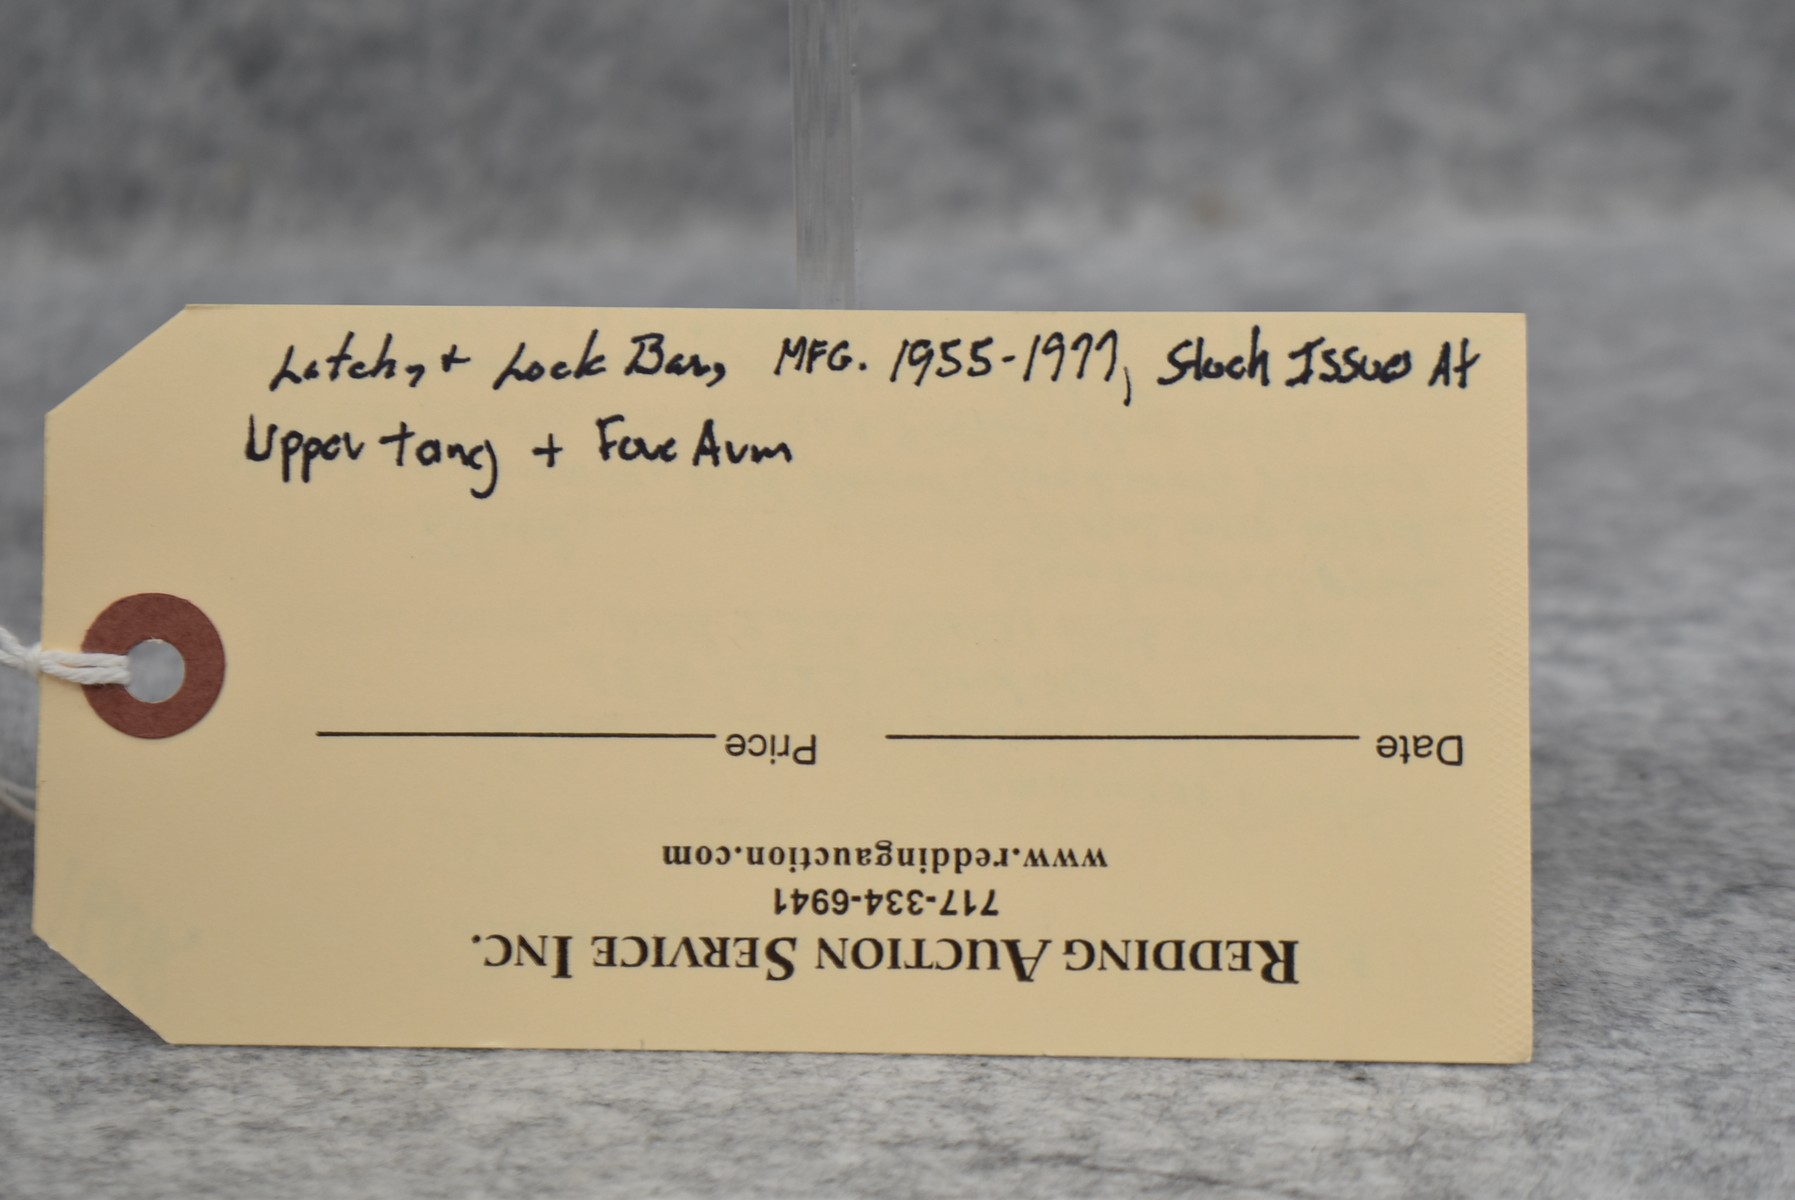 Latch, + Lock Bar, MFG. 1955-1977, Stock Issue At
Upper tang + Fore Arm
Date Price
www.reddingauction.com
717-334-6941
REDDING AUCTION SERVICE INC.